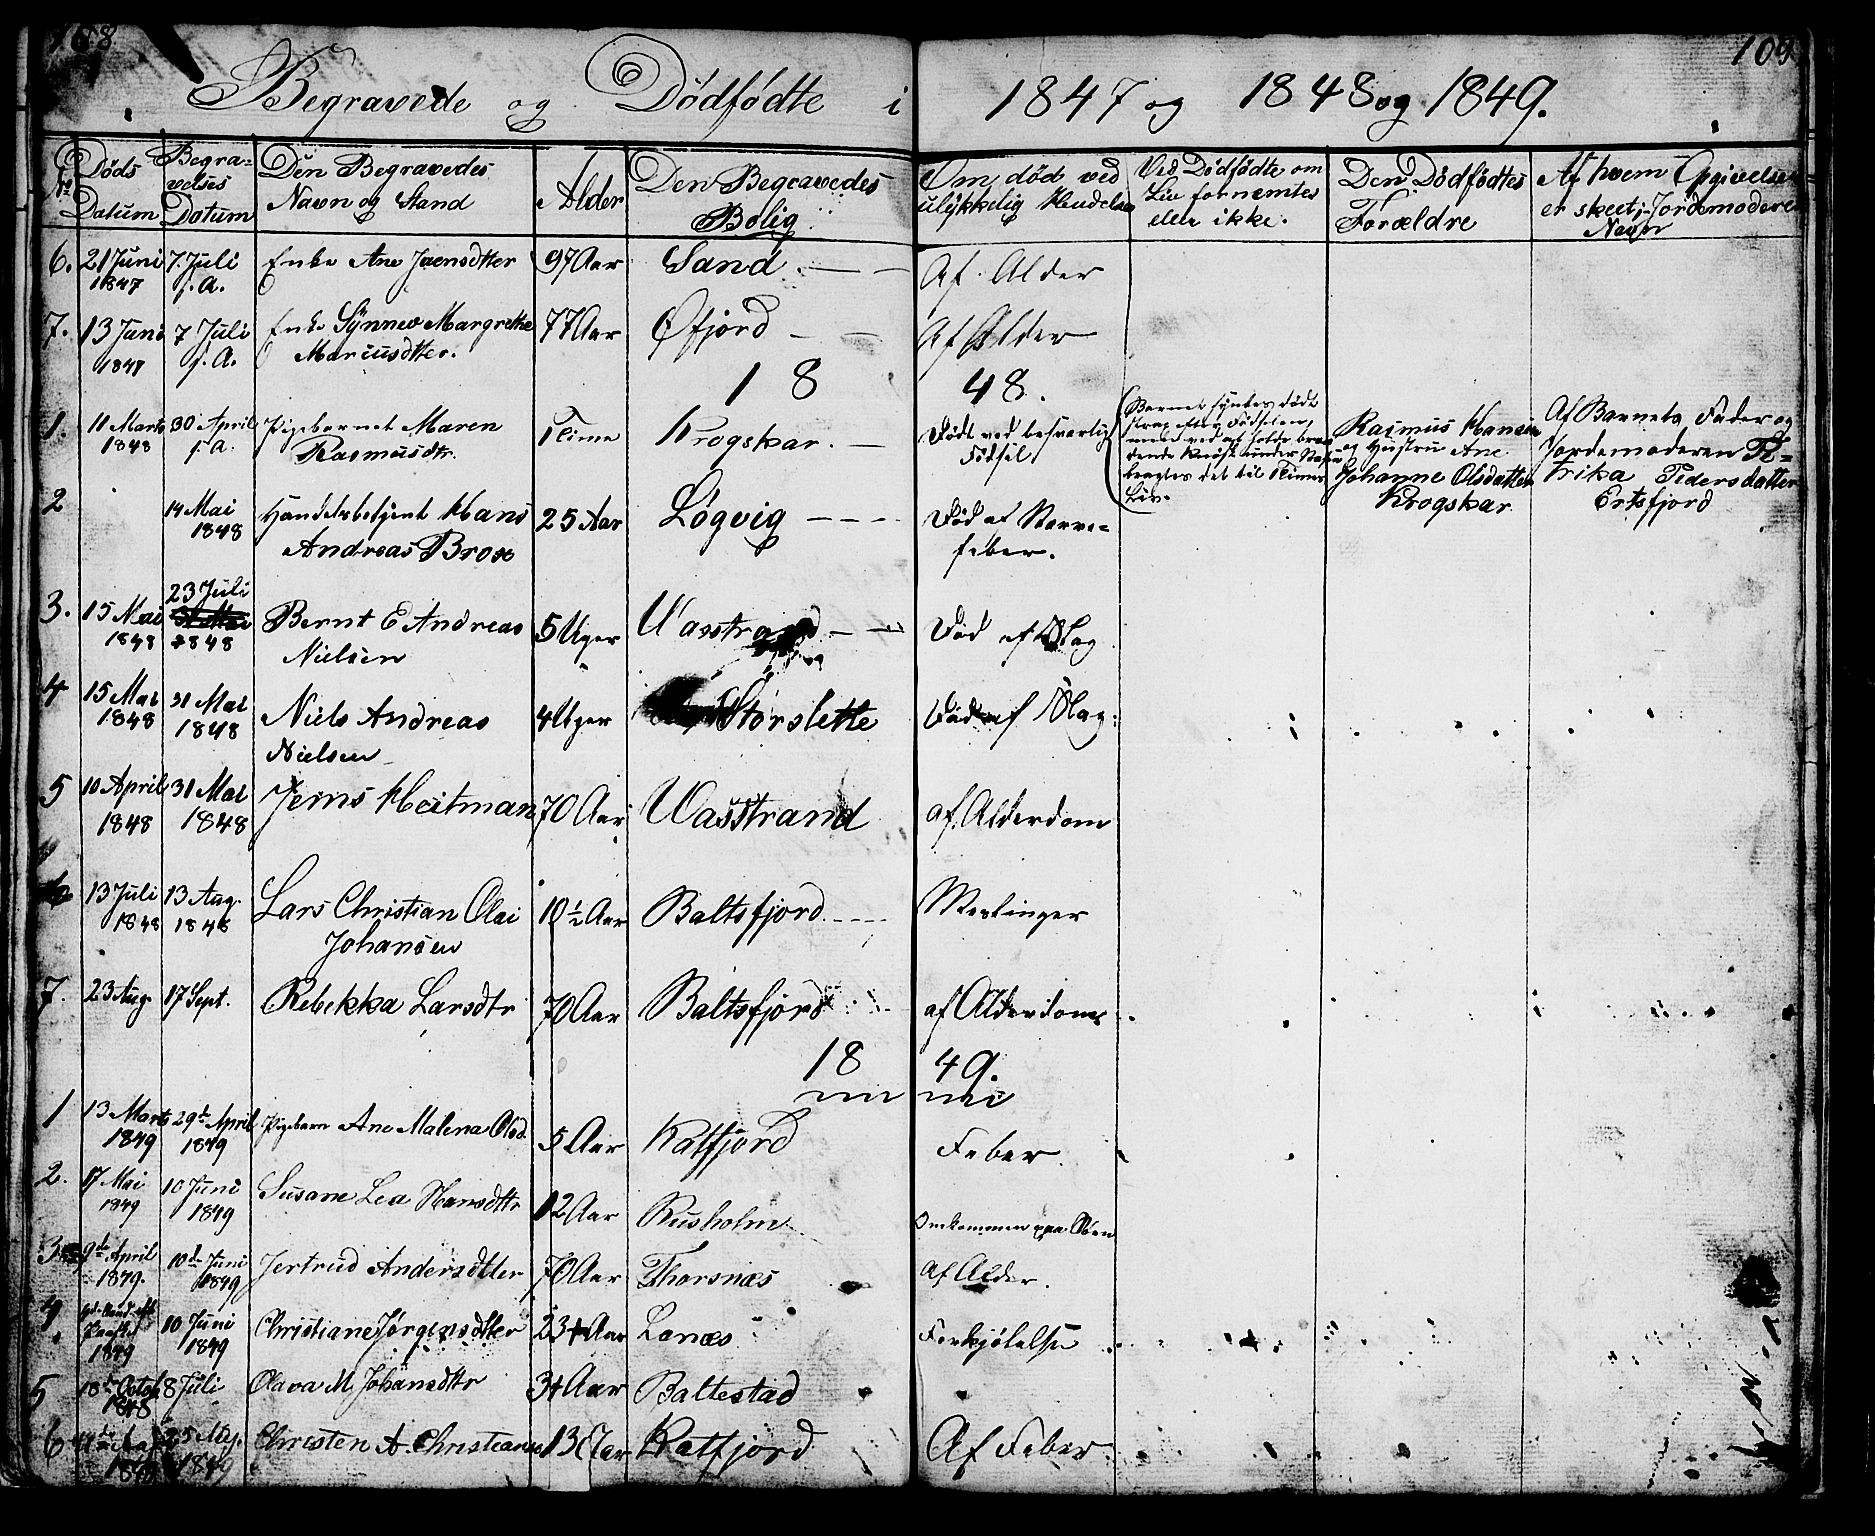 108 109
Begravede og Dødfødte i 1847 og 1848 og 1849.
No Døds Datum Begravelses Datum Den Begravedes Navn og Stand Alder Den Begravedes Bolig Om død ved ulykkelig Hendelse Ved Dødfødte om Liv fornemtes eller ikke. Den Dødfødtes Forældre Af hvem Opgivelsen er skeet; Jordemoderens Navn
6. 21 Juni 1847 7. Juli s. A. Enke Ane Jensdtter 97 Aar Sand. Af Alder
7. 13 Juni 1847 7 Juli s. A. Enke Synnev Margrethe Mariusdtter. 77 Aar Øfjord Af Alder
18 48.
1. 11 Marts 1848 30 April s. A. Pigebarnet Maren Rasmusdtr. 1 Time Krogskar. Født ved besværlig Fødsel
Barnet syntes dødt
strax efter Fødselen,
men ved at holde
under
bragtes det til Timer
Liv.
Rasmus Hansen
og Hustru Ane
Johanne Olsdatter
Krogskar
Af Barnets Fader og
Jordemoderen
Pedersdatter
Ertsfjord
2 14 Mai 1848 Handelsbetjent Hans Andreas Brox 25 Aar Løgvig Død af Nerve-feber.
3. 15 Mai 1848 23 Juli 31 Mai 1848 Bernt E Andreas Nielsen 5 Uger Vasstrand Død af Slag
4 15 Mai 1848 31 Mai 1848 Niels Andreas Nielsen 4 Uger Storslette Død af Slag.
5 10 April 1848 31 Mai 1848 Jems Heitman 70 Aar Vasstrand af Alderdom
6 13 Juli 1848 13 Aug. 1848 Lars Christian Olai Johansen 10 ½ Aar Baltsfjord. Meslinger
7. 23 Aug. 17 Sept. Rebekka Larsdtr 70 Aar Baltsfjord af Alderdom
18 49.
1 13 Marts 1849 29de April 1849 Pigebarn Ane Malena Olsd. 5 Aar Katfjord Feber.
2. 17 Mai 1849 10 Juni 1849 Susane Lea Hansdtr 12 Aar Rusholm. Omkommen paa Søen
3 9de April 1849. 10de Juni 1849 Jertrud Andersdtter 70 Aar Thorsnæs Af Alder.
4 1849 10 Juni 1849 Christiane Jørgensdtter 23 Aar Lanæs Forkjølelse
5 18de Octob 1848 8 Juli Olava M. Johansdttr 34 Aar Baltestad
6 1849 25 1849 Christen A. Christians 13 Aar Katfjord Af Feber